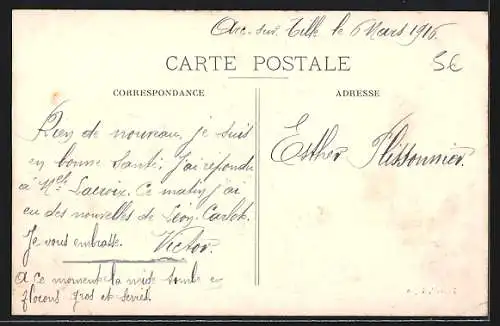 Arc-sur-Tille le 6 Mars 1916.
CARTE POSTALE
5€
CORRESPONDANCE
ADRESSE
Rien de nouveau, je suis
en bonne Santé. J'ai répondu
à Mlle Lacroix. Ce matin j'ai
eu des nouvelles de Léon. Carlok.
Je vous embrasse. Victor.
Esther Plissonnier.
A ce moment la neige tombe en
flocons gros et serrés.